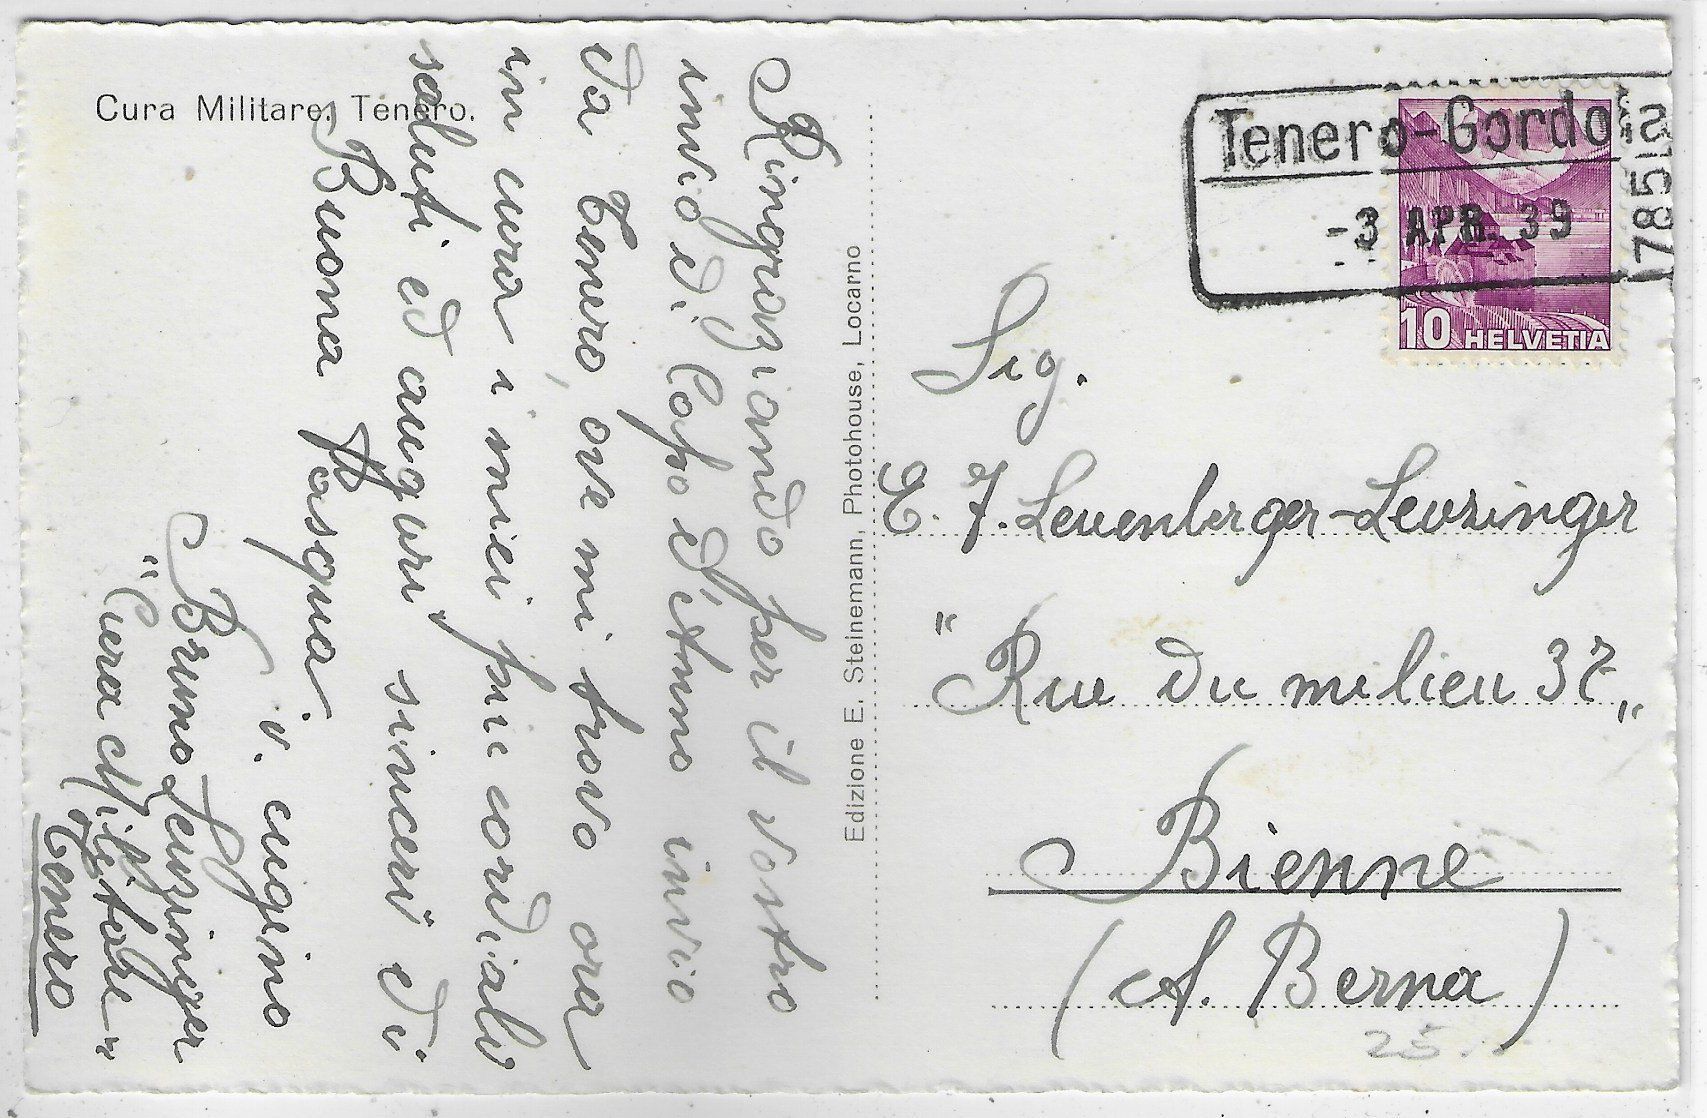 Cura Militare. Tenero.
Ringraziando per il vostro
invio di Capo d'Anno invio
da Tenero, ove mi trovo ora
in cura i miei più cordiali
saluti ed auguri sinceri di
Buona Pasqua.
v. cugino
Bruno Leuzinger
"Cura Militare"
Tenero
Edizione E. Steinemann, Photohouse, Locarno
Tenero-Gordola
-3 APR. 39
1785
10 HELVETIA
Sig.
E. J. Leuenberger-Leuzinger
"Rue du milieu 37"
Bienne
(Ct. Berna)
25.-